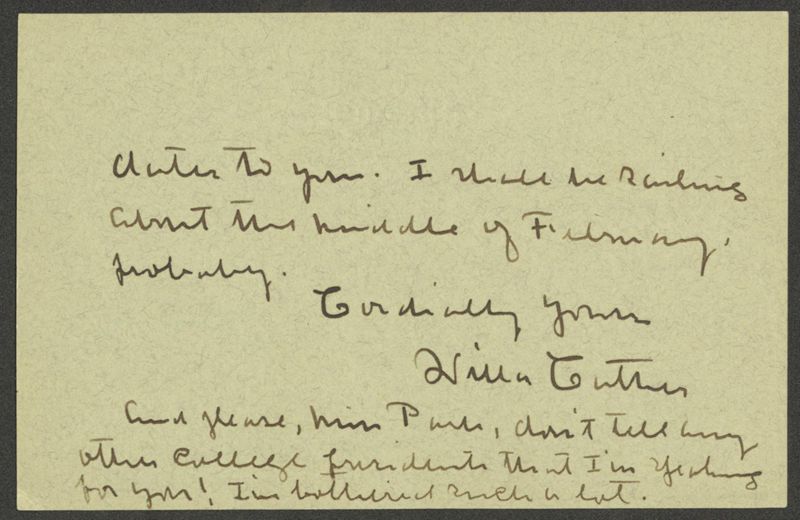 dates to you. I shall be sailing
about the middle of February,
probably.
Cordially yours
Willa Cather
And please, Miss Park, don't tell any
other College presidents that I'm speaking
for you! I'm bothered such a lot.